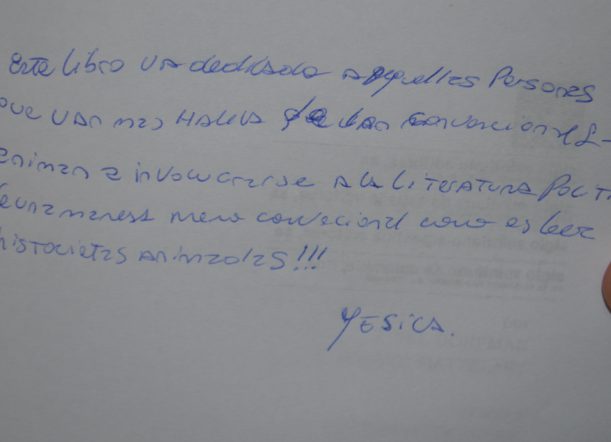 Este libro va dedicado a aquellas Personas
que van mas HALLA de lan convacional
animan a involucrarse A LA LITERATURA POLITI
de una manera meno convecional como es leer
historietas animadas!!!
YESICA.